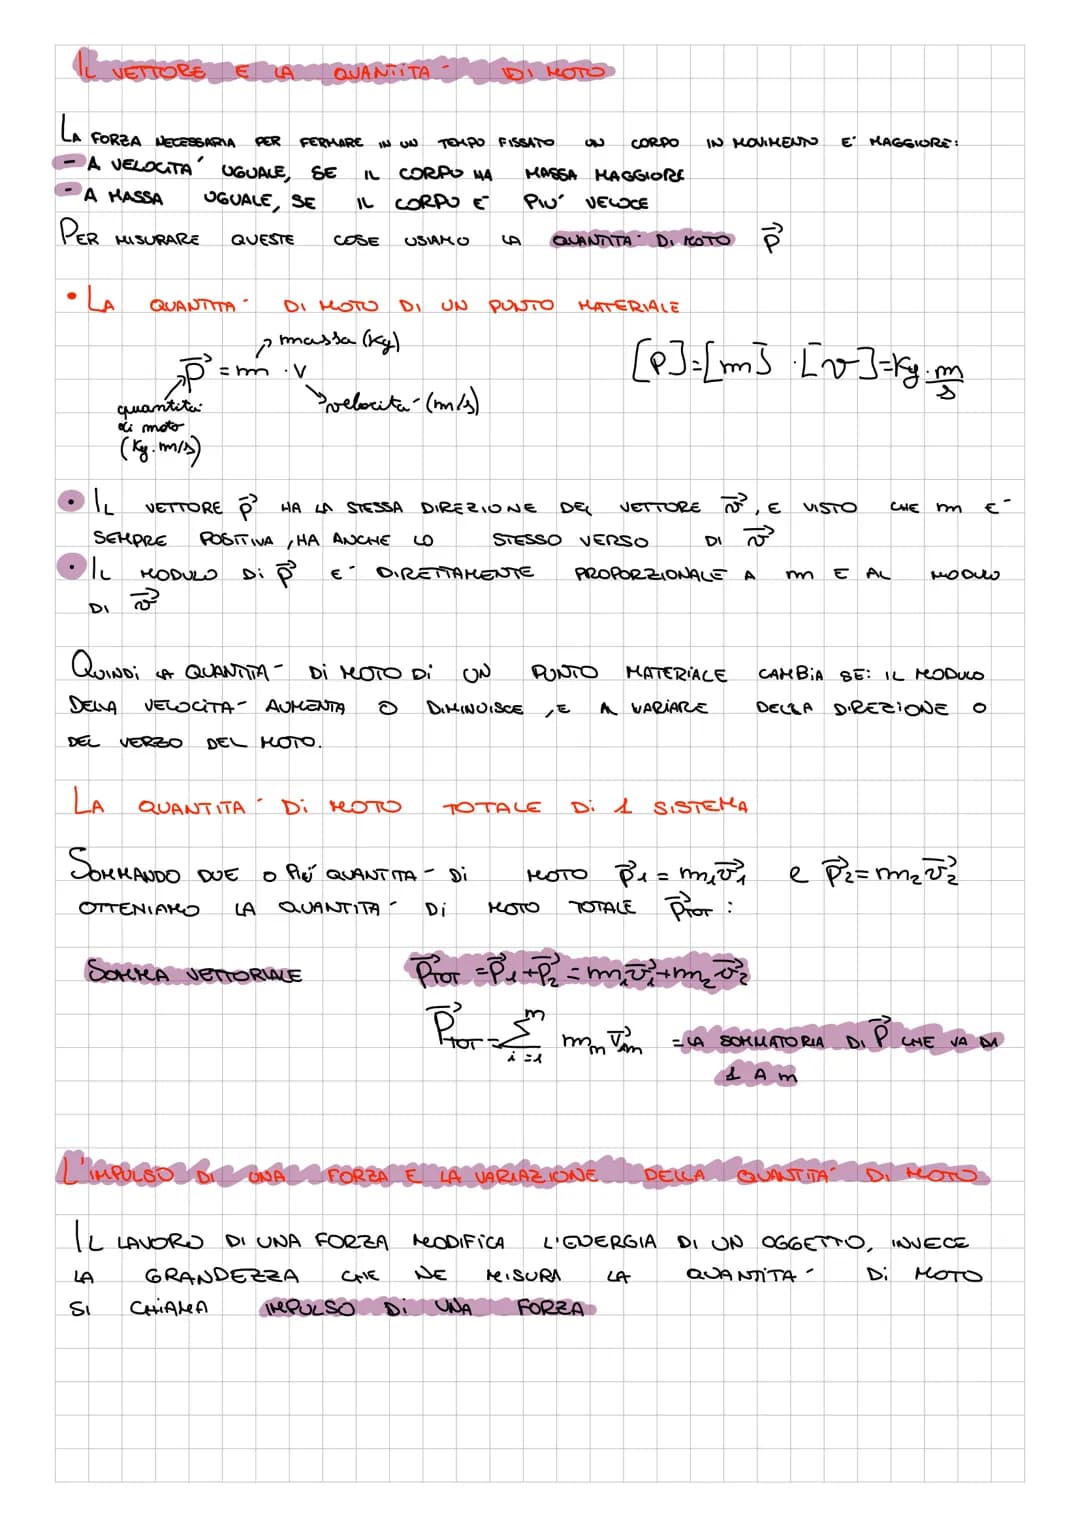 IL VETTORE E LA QUANTITA' DI MOTO
LA FORZA NECESSARIA PER FERMARE IN UN TEMPO FISSATO UN CORPO IN MOVIMENTO E' MAGGIORE:
- A VELOCITA' UGUALE, SE IL CORPO HA MASSA MAGGIORE
- A MASSA UGUALE, SE IL CORPO E' PIU' VELOCE
PER MISURARE QUESTE COSE USIAMO LA QUANTITA' DI MOTO p⃗
• LA QUANTITA' DI MOTO DI UN PUNTO MATERIALE
massa (Kg)
p⃗ = m · v
[P]=[m] · [v]=Kg · m/s
velocita' (m/s)
quantita'
di moto
(Kg · m/s)
• IL VETTORE p⃗ HA LA STESSA DIREZIONE DEL VETTORE v⃗, E VISTO CHE m E'
SEMPRE POSITIVA, HA ANCHE LO STESSO VERSO DI v⃗
• IL MODULO Di p⃗ E' DIRETTAMENTE PROPORZIONALE A m E AL MODULO
DI v⃗
QUINDI LA QUANTITA' Di MOTO Di UN PUNTO MATERIALE CAMBIA SE: IL MODULO
DELLA VELOCITA' AUMENTA O DIMINUISCE, E A VARIARE DELLA DIREZIONE O
DEL VERZO DEL MOTO.
LA QUANTITA' Di MOTO TOTALE Di 1 SISTEMA
SOMMANDO DUE O PIÚ QUANTITA' Di MOTO p⃗₁ = m₁v⃗₁ e p⃗₂ = m₂v⃗₂
OTTENIAMO LA QUANTITA' Di MOTO TOTALE p⃗TOT :
SOMMA VETTORIALE p⃗TOT = p⃗₁ + p⃗₂ = m₁v⃗₁ + m₂v⃗₂
P⃗TOT = Σ m i=1 mₘ v⃗ₘ = LA SOMMATORIA DI P⃗ CHE VA DA
1 A m
L'IMPULSO DI UNA FORZA E LA VARIAZIONE DELLA QUANTITA' DI MOTO
IL LAVORO DI UNA FORZA MODIFICA L'ENERGIA DI UN OGGETTO, INVECE
LA GRANDEZZA CHE NE MISURA LA QUANTITA' Di MOTO
SI CHIAMA IMPULSO Di UNA FORZA